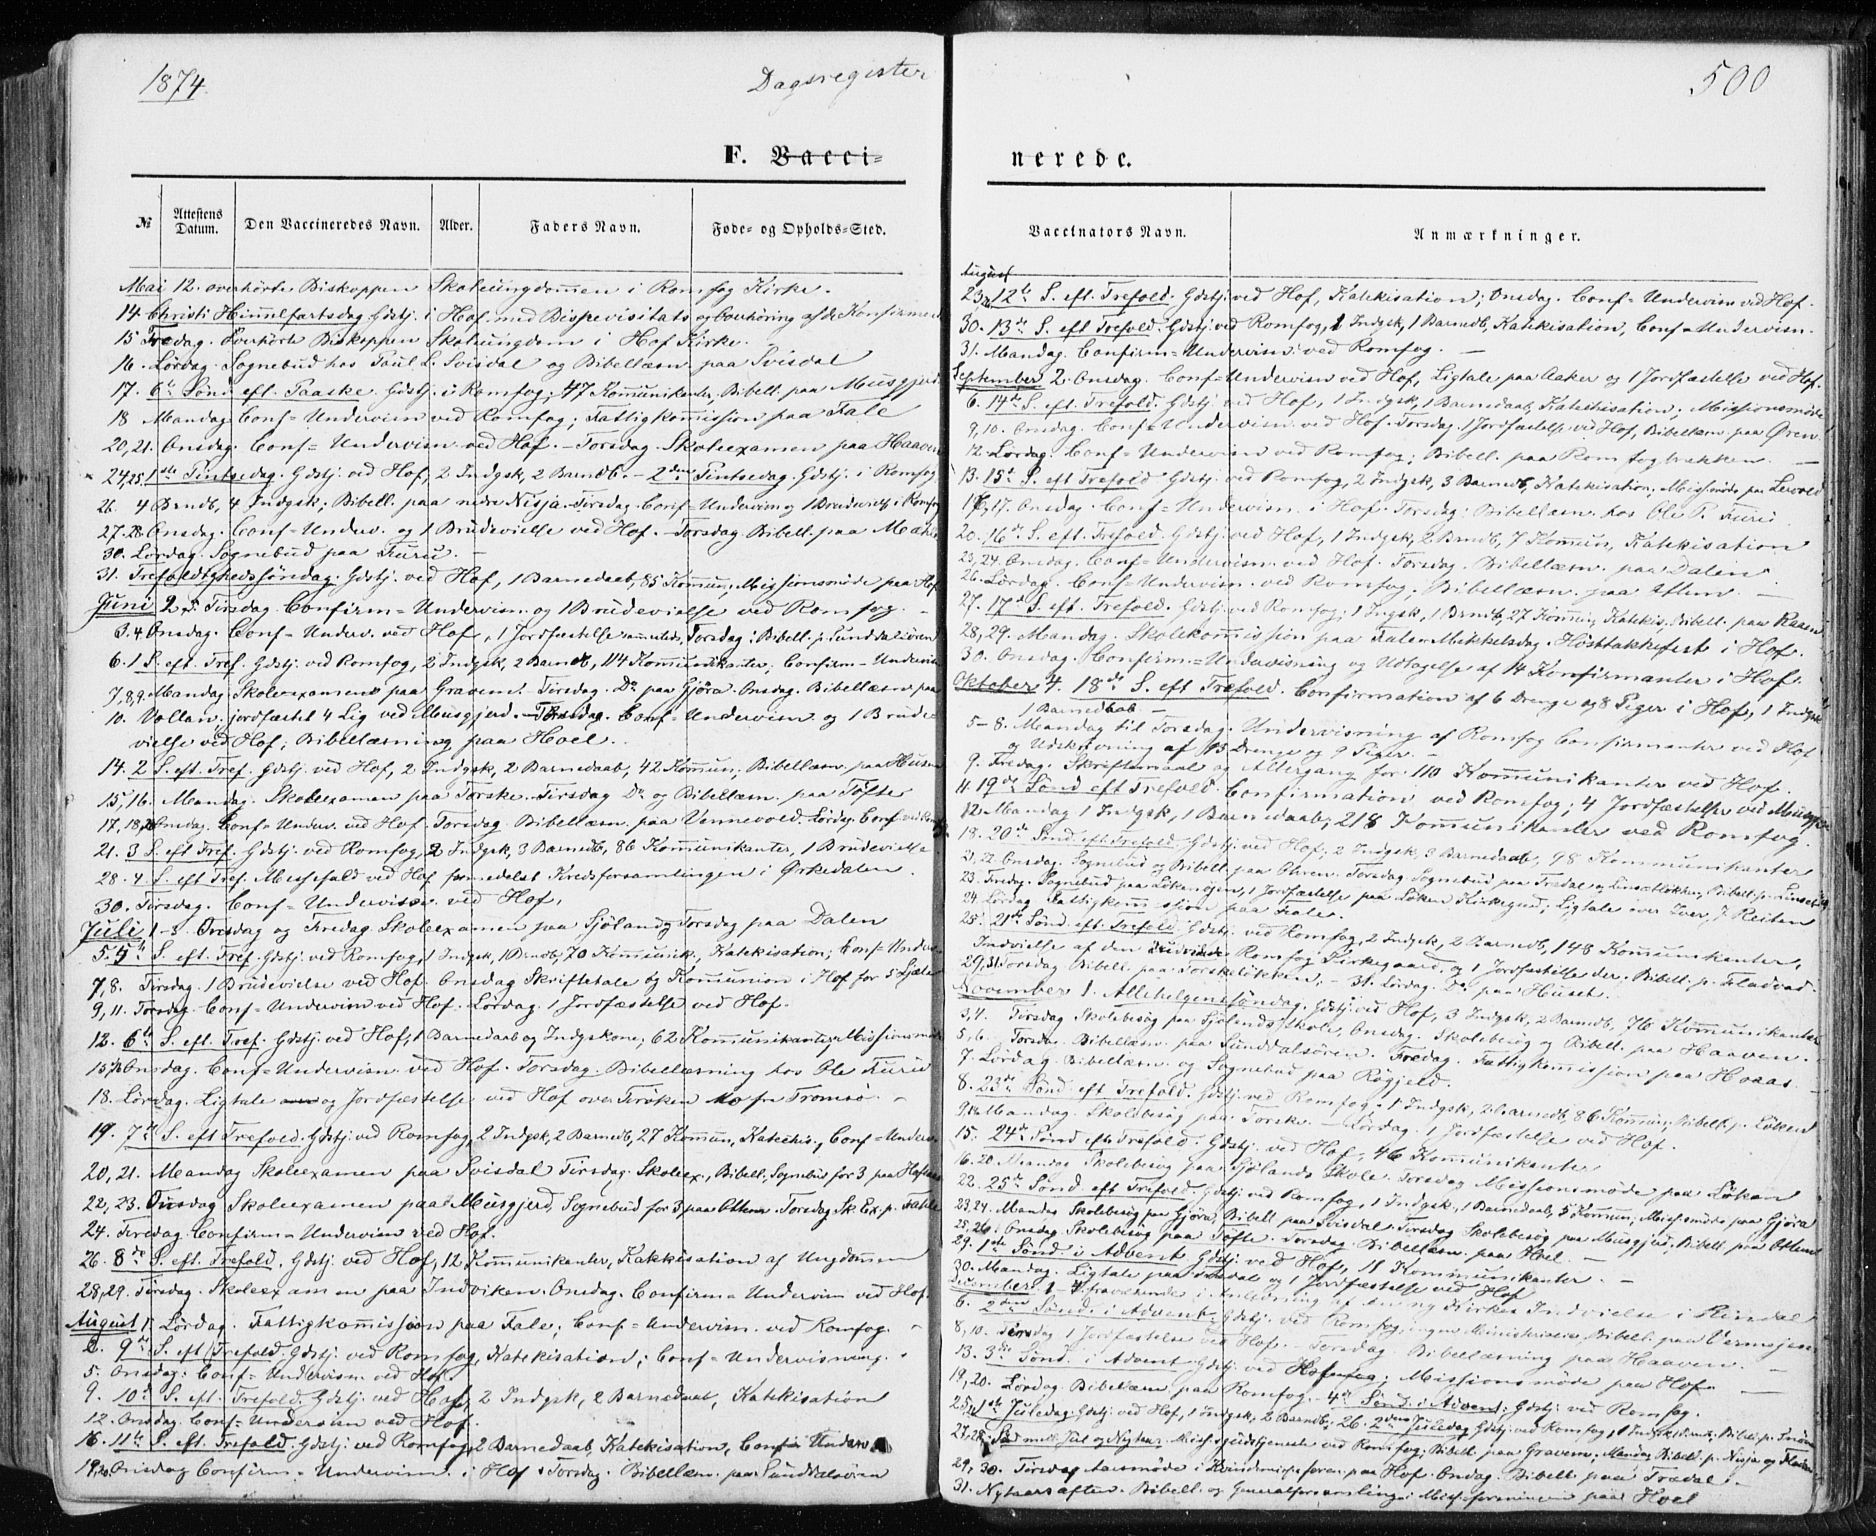 1874.
Dagsregister
500
F. Vacci-
nerede.
№
Attestens Datum.
Den Vaccineredes Navn.
Alder.
Faders Navn.
Føde- og Opholds-Sted.
Vaccinators Navn.
Anmærkninger.
Mai 12. overhørte Biskoppen Skoleungdommen i Romfog Kirke.
14. Christi Himmelfartsdag Gdstj. i Hof med Bispevisitats og Overhøring af de Konfirmed
15 Fredag. Overhørte Biskoppen Skoleungdom i Hof Kirke.
16. Lørdag. Sognebud hos Poul L. Svisdal og Bibellæsn. paa Svisdal
17. 6te Sønd. eft. Paaske. Gdstj. i Romfog; 47 Kom̄unikanter, Bibell. paa Musgjerd
18 Mandag. Conf= Undervisn. ved Romfog; Fattigkom̄ission paa Fale
20, 21. Onsdag. Conf= Undervisn. ved Hof. - Torsdag. Skoleexamen paa Haaven
24, 25. 1ste Pintsedag. Gdstj. ved Hof, 2 Indgsk, 2 Barnedb. - 2den Pintsedag. Gdstj. i Romfog
26. 4 Brndb, 4 Indgsk. Bibell. paa nedre Nisja. Tirsdag. Conf= Undervisn og 1 Brudevielse i Romfog
27. 28. Onsdag. Conf= Underv. og 1 Brudevielse ved Hof. - Torsdag. Bibell. paa
30. Lørdag. Sognebud paa Furu. -
31. Trefoldighedssøndag. Gdstj. ved Hof, 1 Barnedaab, 85 Kom̄un, Missionsmøde paa Hof
Juni 2. Tirsdag. Confirm= Undervisn. og 1 Brudevielse ved Romfog. -
3. 4 Onsdag. Conf= Underv. ved Hof, 1 Jordfæstelse sammesteds, Torsdag: Bibell. p. Sunddalsøren
6. 1 S. eft. Tref. Gdstj. ved Romfog, 2 Indgsk, 2 Barnedb, 114 Kom̄unikanter; Confirm= Undervisn
7, 8, 9. Mandag. Skoleexamen paa Graven. Tirsdag. Do paa Gjøra. Onsdag. Bibellæsn paa
10. Vollan. jordfæstet 4 Lig ved Musgjerd. - Torsdag. Conf= Undervisn og 1 Brude-
vielse ved Hof; Bibellæsning paa Hoel.
14. 2 S. eft. Tref. Gdstj. ved Hof, 2 Indgsk, 2 Barnedaab, 42 Kom̄un; Bibellæsn. paa Husen
15, 16. Mandag. Skoleexamen paa Torske. Tirsdag Do og Bibellæsn. paa Tofte
17, 18, Onsdag. Conf= Underv. ved Hof. Torsdag. Bibellæsn. paa Vennevold. Lørdag Conf ved
21. 3 S. eft Tref. Gdstj. ved Romfog, 2 Indgsk, 3 Barnedb, 86 Kom̄unikanter, 1 Brudevielse
28. 4. S. eft Tref. Messefald ved Hof formedelst Kredsforsamlingen i Ørkedalen.
30. Tirsdag. Conf= Undervisn. ved Hof,
Juli 1-2. Onsdag og Fredag. Skoleexamen paa Sjöland, Torsdag paa Dalen
5. 5te S. eft. Tref. Gdstj. ved Romfog, 1 Indgsk, 1 Brndb, 70 Kom̄unik., Katekisation; Conf= Underv.
7, 8. Tirsdag. 1 Brudevielse ved Hof. Onsdag Skriftetale og Kom̄union i Hof for 5 Sjæle
9, 11. Torsdag. Conf= Undervisn ved Hof. Lørdag. 1 Jordfæstelse ved Hof.
12. 6te S. eft. Tref. Gdstj. ved Hof, 1 Barnedaab og Indgskone; 62 Kom̄unikanter, Missionsmøde
15, 16 Onsdag. Conf= Undervisn. ved Hof. Torsdag. Bibellæsning hos Ole Furu
18. Lørdag. Ligtale og Jordfæstelse ved Hof over Frøken Mo fra Tromsø. -
19. 7de S. eft Trefold. Gdstj. ved Romfog, 2 Indgsk, 2 Barnedb, 27 Kom̄un, Katechis, Conf= Underv.
20, 21. Mandag Skoleexamen paa Svisdal Tirsdag. Skoleex., Bibell. Sognebud for 3 paa
22, 23. Onsdag Skoleexamen paa Musgjerd, Sognebud for 3 paa Ottem. Torsdag Sk. Ex. p. Fahle
24. Fredag. Confirm= Undervisn ved Hof.
26. 8de S. eft. Trefold. Gdstj. ved Hof, 12 Kom̄unikanter, Katekisation af Ungdom̄en
28, 29. Tirsdag. Skoleexamen paa Indviken. Onsdag. Confirm= Undervisn ved Hof.
August 1. Lørdag. Fattigkom̄ission paa Fale; Conf= Undervisn. ved Romfog. -
2. 9de S. eft. Trefold. Gdstj. ved Romfog, Katekisation; Conf= Undervisning. -
5. Onsdag: Conf= Undervisn ved Hof.
9. 10de S. eft. Trefold. Gdstj. ved Hof, 2 Indgsk, 2 Barnedaab, Katekisation
12. Onsdag. Conf= Undervisn ved Hof.
16. 11te S. eft. Trefold. Gdstj. ved Romfog, 2 Barnedaab, Katekisation, Conf= Underv
19, 20 Onsdag Confirm= Undervisn. i Hof. Torsdag. Bibellæsn. paa Sunddalsøren
August
23. 12te S. eft. Trefold. Gdstj. ved Hof, Katekisation; Onsdag. Conf= Undervisn ved Hof.
30. 13de S. eft Trefold. Gdstj. ved Romfog, 1 Indgsk, 1 Barnedb, Katekisation, Conf= Undervisn.
31. Mandag. Confirm= Undervisn. ved Romfog. -
September 2. Onsdag. Conf= Undervisn ved Hof, Ligtale paa Aaker og 1 Jordfæstelse ved Hof.
6. 14de S. eft. Trefold. Gdstj. ved Hof, 1 Indgsk, 1 Barnedaab, Katekisation, Missionsmøde
9, 10. Onsdag. Conf= Undervisn. ved Hof. Torsdag 1 Jordfæstelse ved Hof, Bibellæsn paa Øren
12. Lørdag. Conf= Undervisn ved Romfog; Bibell. paa Romfogbakken. -
13. 15de S. eft Trefold Gdstj. ved Romfog, 2 Indgsk, 3 Barnedb, Katekisation, Missmøde paa
16, 17. Onsdag. Conf= Undervisn. i Hof. Torsdag: Bibellæsn hos Ole P. Furu
20. 16de S. eft. Trefold. Gdstj. ved Hof, 1 Indgsk, 2 Brndb, 7 Kom̄un, Katekisation
23, 24. Onsdag. Conf= Undervisn. ved Hof. Torsdag. Bibellæsn. paa Dalen -
26. Lørdag. Conf= Undervisn. ved Romfog; Bibellæsn. paa Ottem. -
27. 17de S. eft. Trefold. Gdstj. ved Romfog, 1 Ingsk, 1 Brndb, 27 Kom̄un, Katekis, Bibell. paa Raaen
28, 29. Mandag. Skolekom̄ission paa Fale. Mikkelsdag. Høsttakkefest i Hof.
30. Onsdag. Confirm= Undervisning og Udtagelse af 14 Konfirmanter i Hof.
Oktober 4. 18de S. eft Trefold. Confirmation af 6 Drenge og 8 Piger i Hof, 1 Indgsk
1 Barnedaab -
5-8. Mandag til Torsdag. Undervisning af Romfog Confirmanter ved Hof
og Udskrivning af 15 Drenge og 9 Piger. -
9. Fredag. Skriftemaal og Altergang for 110 Kom̄unikanter ved Hof.
11. 19de Sønd eft Trefold. Confirmation ved Romfog; 4 Jordfæstelser ved Musgjerd
12. Mandag 1 Indgsk, 1 Barnedaab; 218 Kom̄unikanter ved Romfog.
18. 20de Sønd eft Trefold. Gdstj. ved Hof; 2 Indgsk, 3 Barnedaab, 98 Kommunikanter
21, 22. Onsdag. Sognebud og Bibell. paa Øhren. Torsdag Sognebud paa Tredal og
23. Fredag. Sognebud paa Løkenøien, 1 Jordfæstelse paa Løken Kirkegaard; Ligtale over Iver, 7 Reiten
24. Lørdag Fattigkom̄ission paa Fale.
25. 21de Sønd. eft. Trefold. Gdstj. ved Romfog, 2 Indgsk, 2 Barnedb, 148 Kom̄unikanter,
Indvielse af den udvidede Romfog Kirkegaard, og 1 Jordfæstelse der, Bibell. p. Fladvad.
29, 31 Torsdag Bibell. paa Torskeløkken, - 31. Lørdag. Do paa Husets.
November 1. Allehelgenssøndag, Gdstj. ved Hof, 3 Indgsk, 2 Barnedb, 76 Kom̄unikanter
3, 4. Tirsdag Skolebesøg paa Sjølands Skole, Onsdag. Skolebesøg og Bibell. paa Haaven. -
5, 6. Torsdag. Bibellæsn. paa Sunddalsøren. Fredag. Fattigkom̄ission paa Hoaas. -
7. Lørdag. Bibellæsn. og Sognebud paa Røgjeld.
8. 23de Sønd eft Trefold. Gdstj. ved Romfog, 1 Indgsk, 2 Barnedb, 86 Kom̄un; Bibell. p. Løken
9. Mandag. Skolebesøg paa Torske. - Lørdag. 1 Jordfæstelse ved Hof.
15. 24de Sønd eft Trefold. Gdstj. ved Hof; 46 Kom̄unikanter
16. 20 Mandag Skolebesøg paa Sjølands Skole. Torsdag Missionsmøde paa Løken
22. 25de Sønd eft Trefold. Gdstj. ved Romfog, 1 Indgsk, 1 Barnedb, 5 Kom̄un; Missmøde paa Gjøra
23, 24. Mandag Skolebesøg paa Gjøra, Bibell paa Svisdal. Tirsdag Skolebesøg paa Musgjerd, Bibell. paa Ottem
25, 26. Onsdag Skolebesøg paa Tofte. Torsdag. Bibellæsn. paa Hoel.
29. 1ste Sønd i Advent Gdstj. ved Hof, 11 Kommunikanter. -
30. Mandag. Ligtale paa Tredal og 1 Jordfæstelse ved Hof
December 1-4. fraværende i Anledning af en ny Kirkes Indvielse i Rindal
6. 2den Sønd. i Advent. Gdstj. ved Romfog, ingen Ministerialia, Bibell. paa
8, 10. Tirsdag 1 Jordfæstelse ved Hof. - Torsdag. Bibellæsning paa Haaven. -
13. 3die Sønd. i Advent Gdstj ved Hof; Missionsmøde paa Hof. -
19, 20. Lørdag. Bibellæsn paa Romfog. - 4de Sønd. i Advent; Gdstj. ved Romfog.
25, 1ste Juledag. Gdstj. ved Hof, 1 Indgsk, 2 Barndb; 26. 2den Juledag Gdstj. ved Romfog, 1 Indgsk,
27, 28. Sønd mell. Jul og Nytaar. Missionsgudstjeneste ved Romfog; Bibell. paa Graven; Mandag Bibell. p. Nisja og
29, 30. Tirsdag Aarsmøde i Kvindemissforen. paa Hof. Onsdag. Bibell. paa Tredal.
31. Nytaarsaften. Bibell. og Generalforsamling i Missforeningen paa Hoel